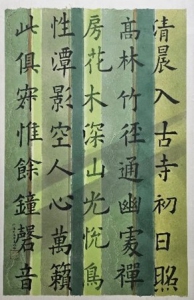 清晨入古寺初日照
髙林竹徑通幽處禪
房花木深山光悅鳥
性潭影空人心萬籟
此俱寂惟餘鐘磬音